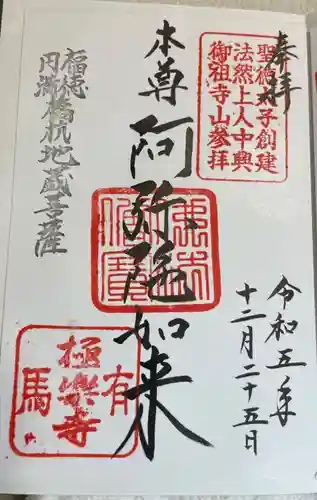 奉拝
聖徳太子創建
法然上人中興
御祖寺山参拝
令和五年
十二月二十五日
本尊
阿弥陀如来
佛法
僧寳
福徳
円満
橋杭地蔵菩薩
有馬
極樂寺